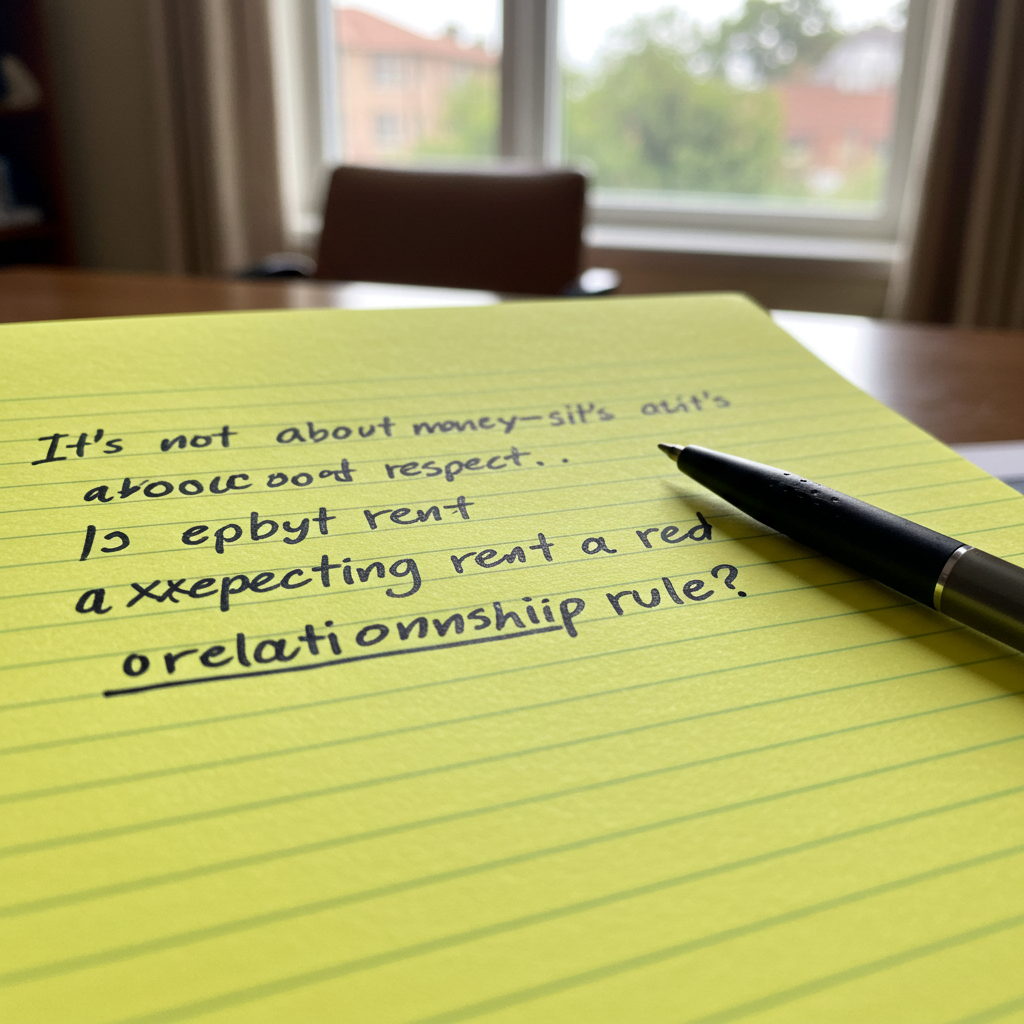 It's not about money—sit's auit's
about oood respect..
Is epbyt rent
a xxepecting rent a red
o relationnshiip rule?